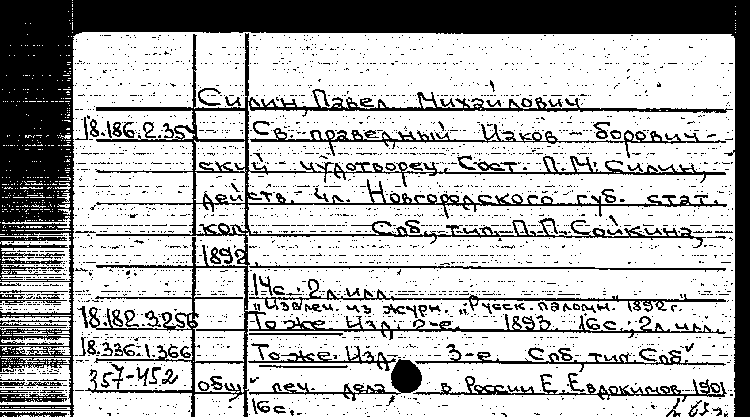 Силин, Павел Михайлович
18.186.2.354 Св. праведный Иаков - борович-
ский - чудотворец. Сост. П. М. Силин,
действ. чл. Новгородского губ. стат.
ком. Спб., тип. П. П. Сойкина,
1892.
14с.; 2л. илл.
"Извлеч. из журн. „Русск. паломн." 1892 г."
18.182.3.256 То же. Изд. 2-е. 1893. 16с.; 2л. илл.
18.336.1.366 То же. Изд. 3-е. Спб., тип. Спб.
357-452 общ. печ. дела в России Е. Евдокимов, 1901
16с.